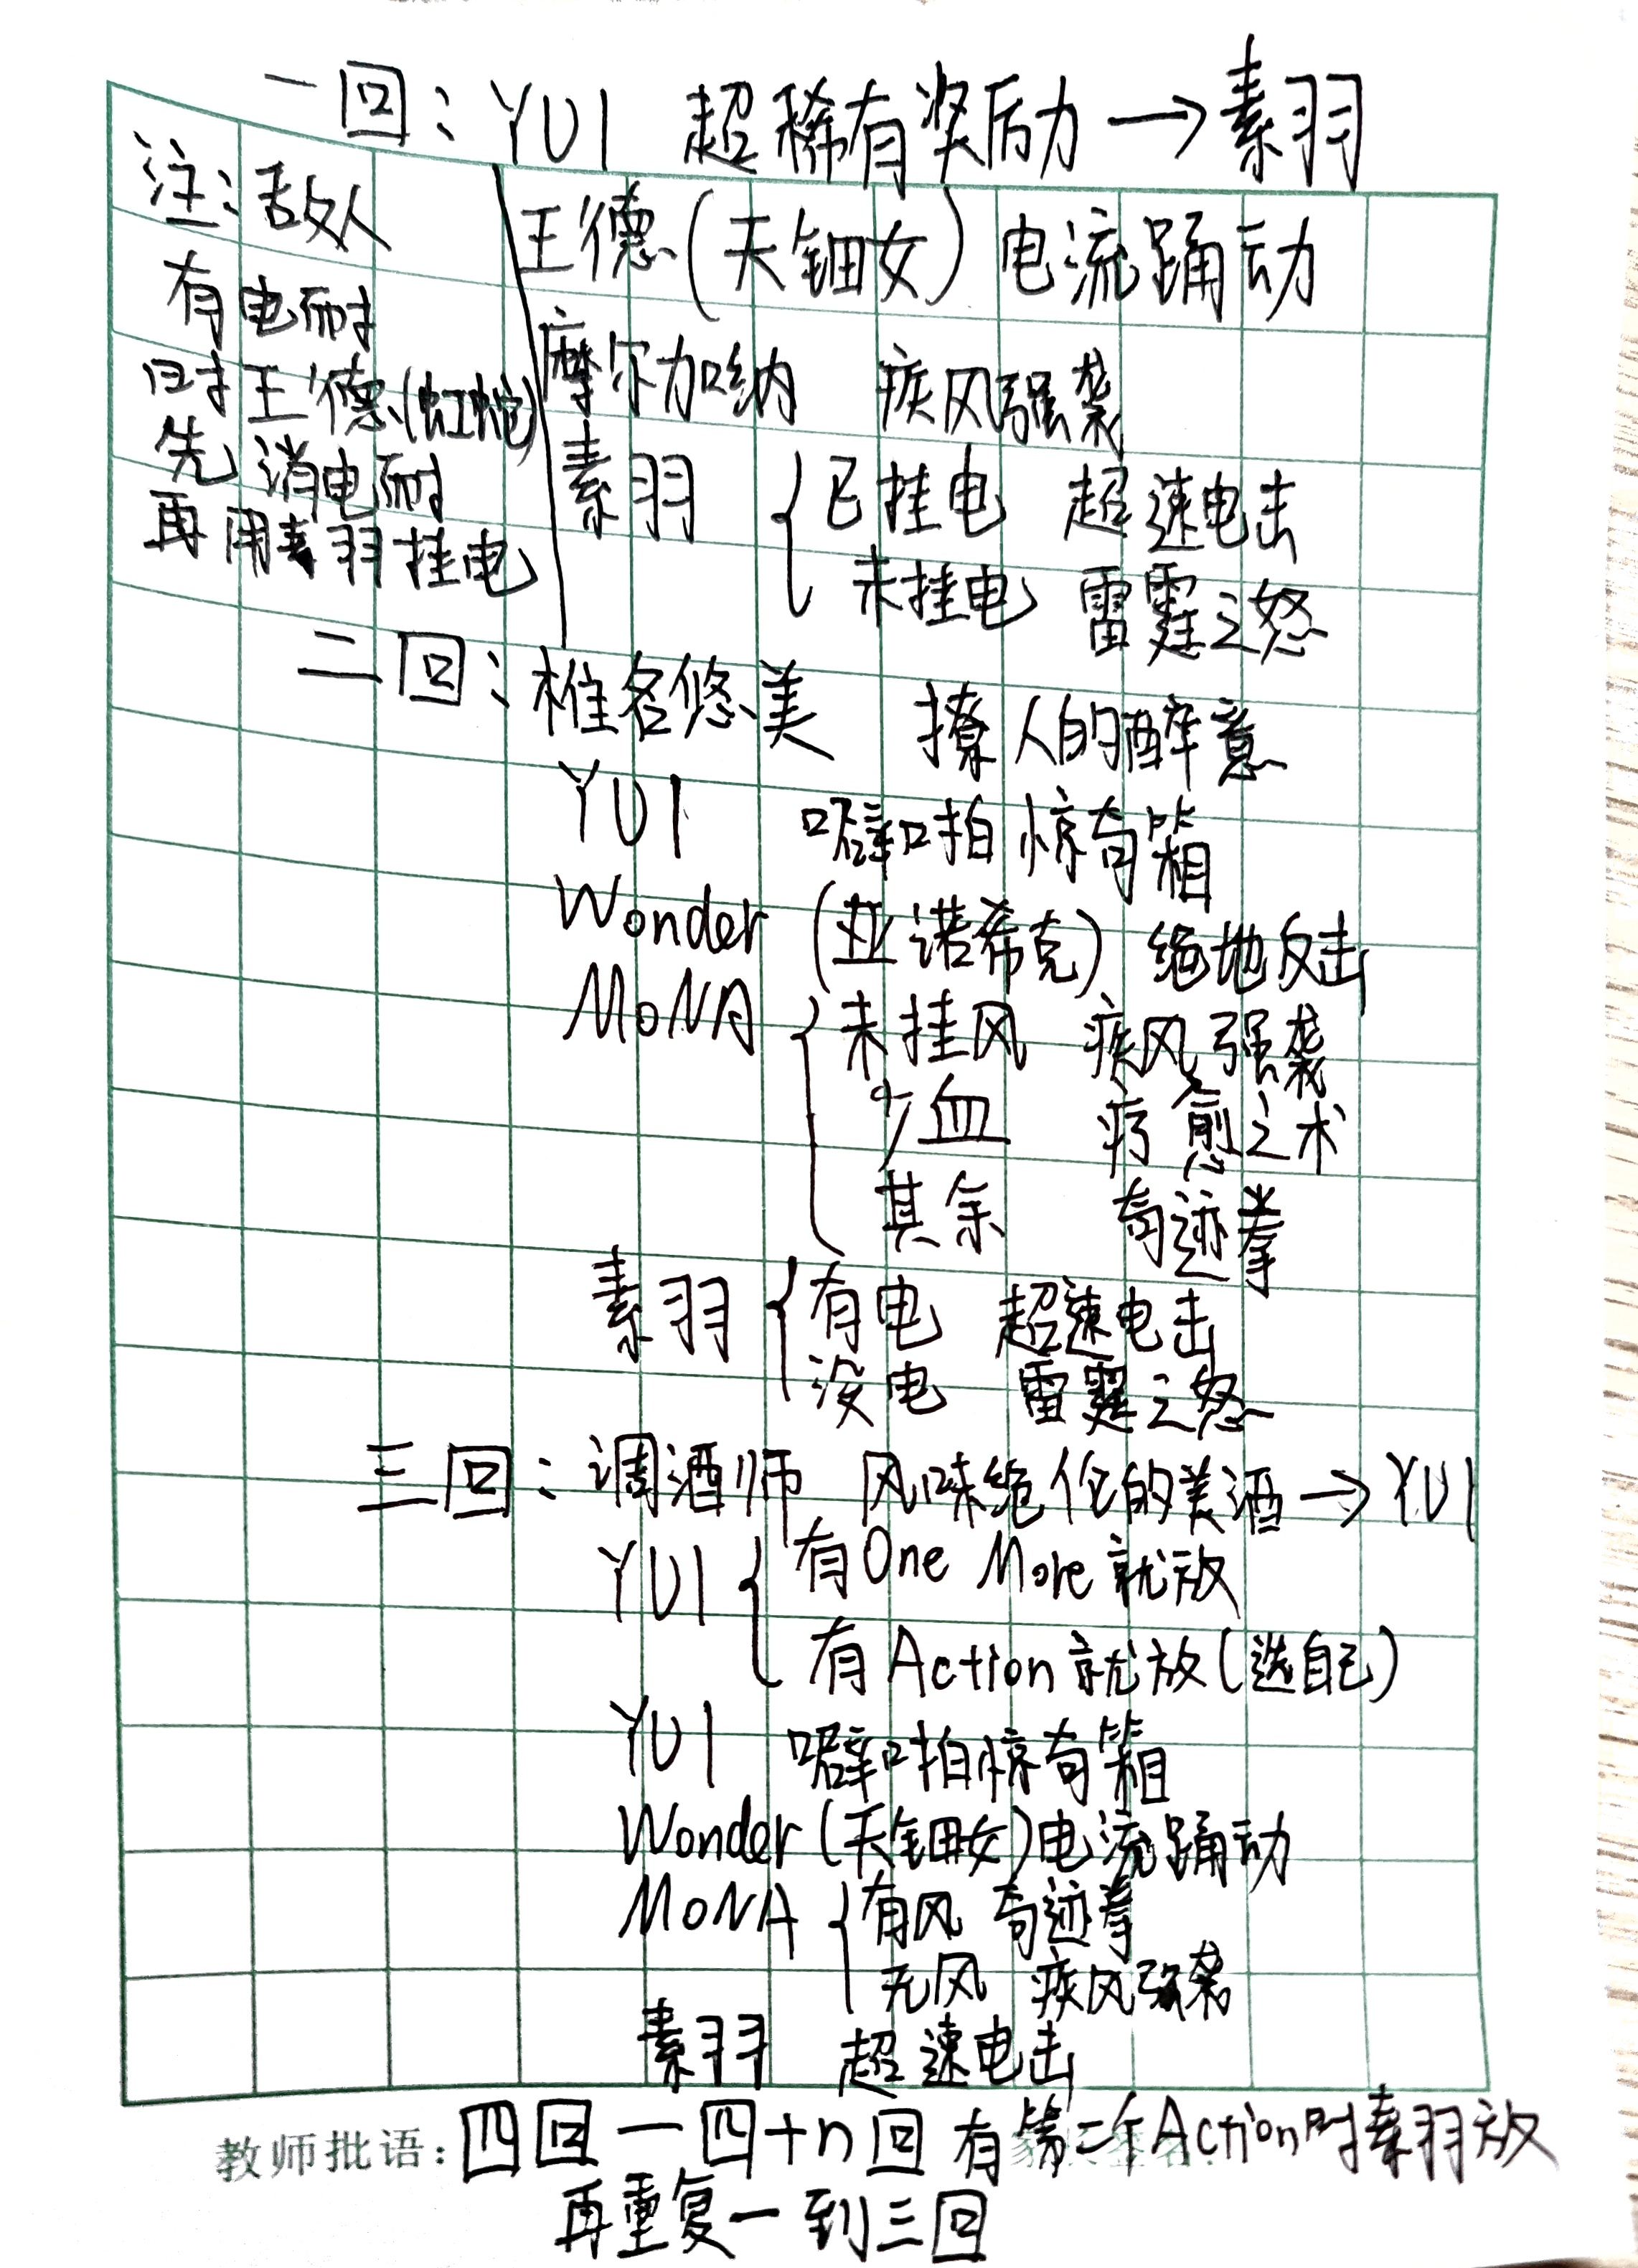 一回：YUI 超稀有奖励→素羽
王德(天钿女) 电流踊动
摩尔加呐 疾风强袭
素羽 已挂电 超速电击
未挂电 雷霆之怒
注：敌人
有电耐
时王德(虹蛇)
先消电耐
再用素羽挂电
二回：椎名悠美 撩人的醉意
YUI 噼啪惊奇箱
Wonder (亚诺希克) 绝地反击
MoNA 未挂风 疾风强袭
少血 疗愈之术
其余 奇迹拳
素羽 有电 超速电击
没电 雷霆之怒
三回：调酒师 风味绝伦的美酒→YUI
YUI 有One More就放
有Action就放(选自己)
YUI 噼啪惊奇箱
Wonder(天钿女)电流踊动
MoNA 有风 奇迹拳
无风 疾风强袭
素羽 超速电击
教师批语：四回一四+n回 有第二个Action时素羽放
再重复一到三回